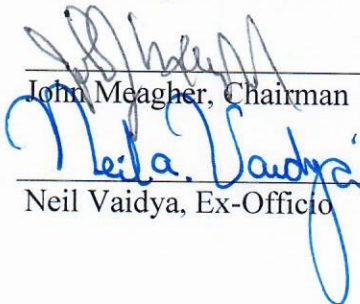 John Meagher, Chairman
Neil a. Vaidya
Neil Vaidya, Ex-Officio